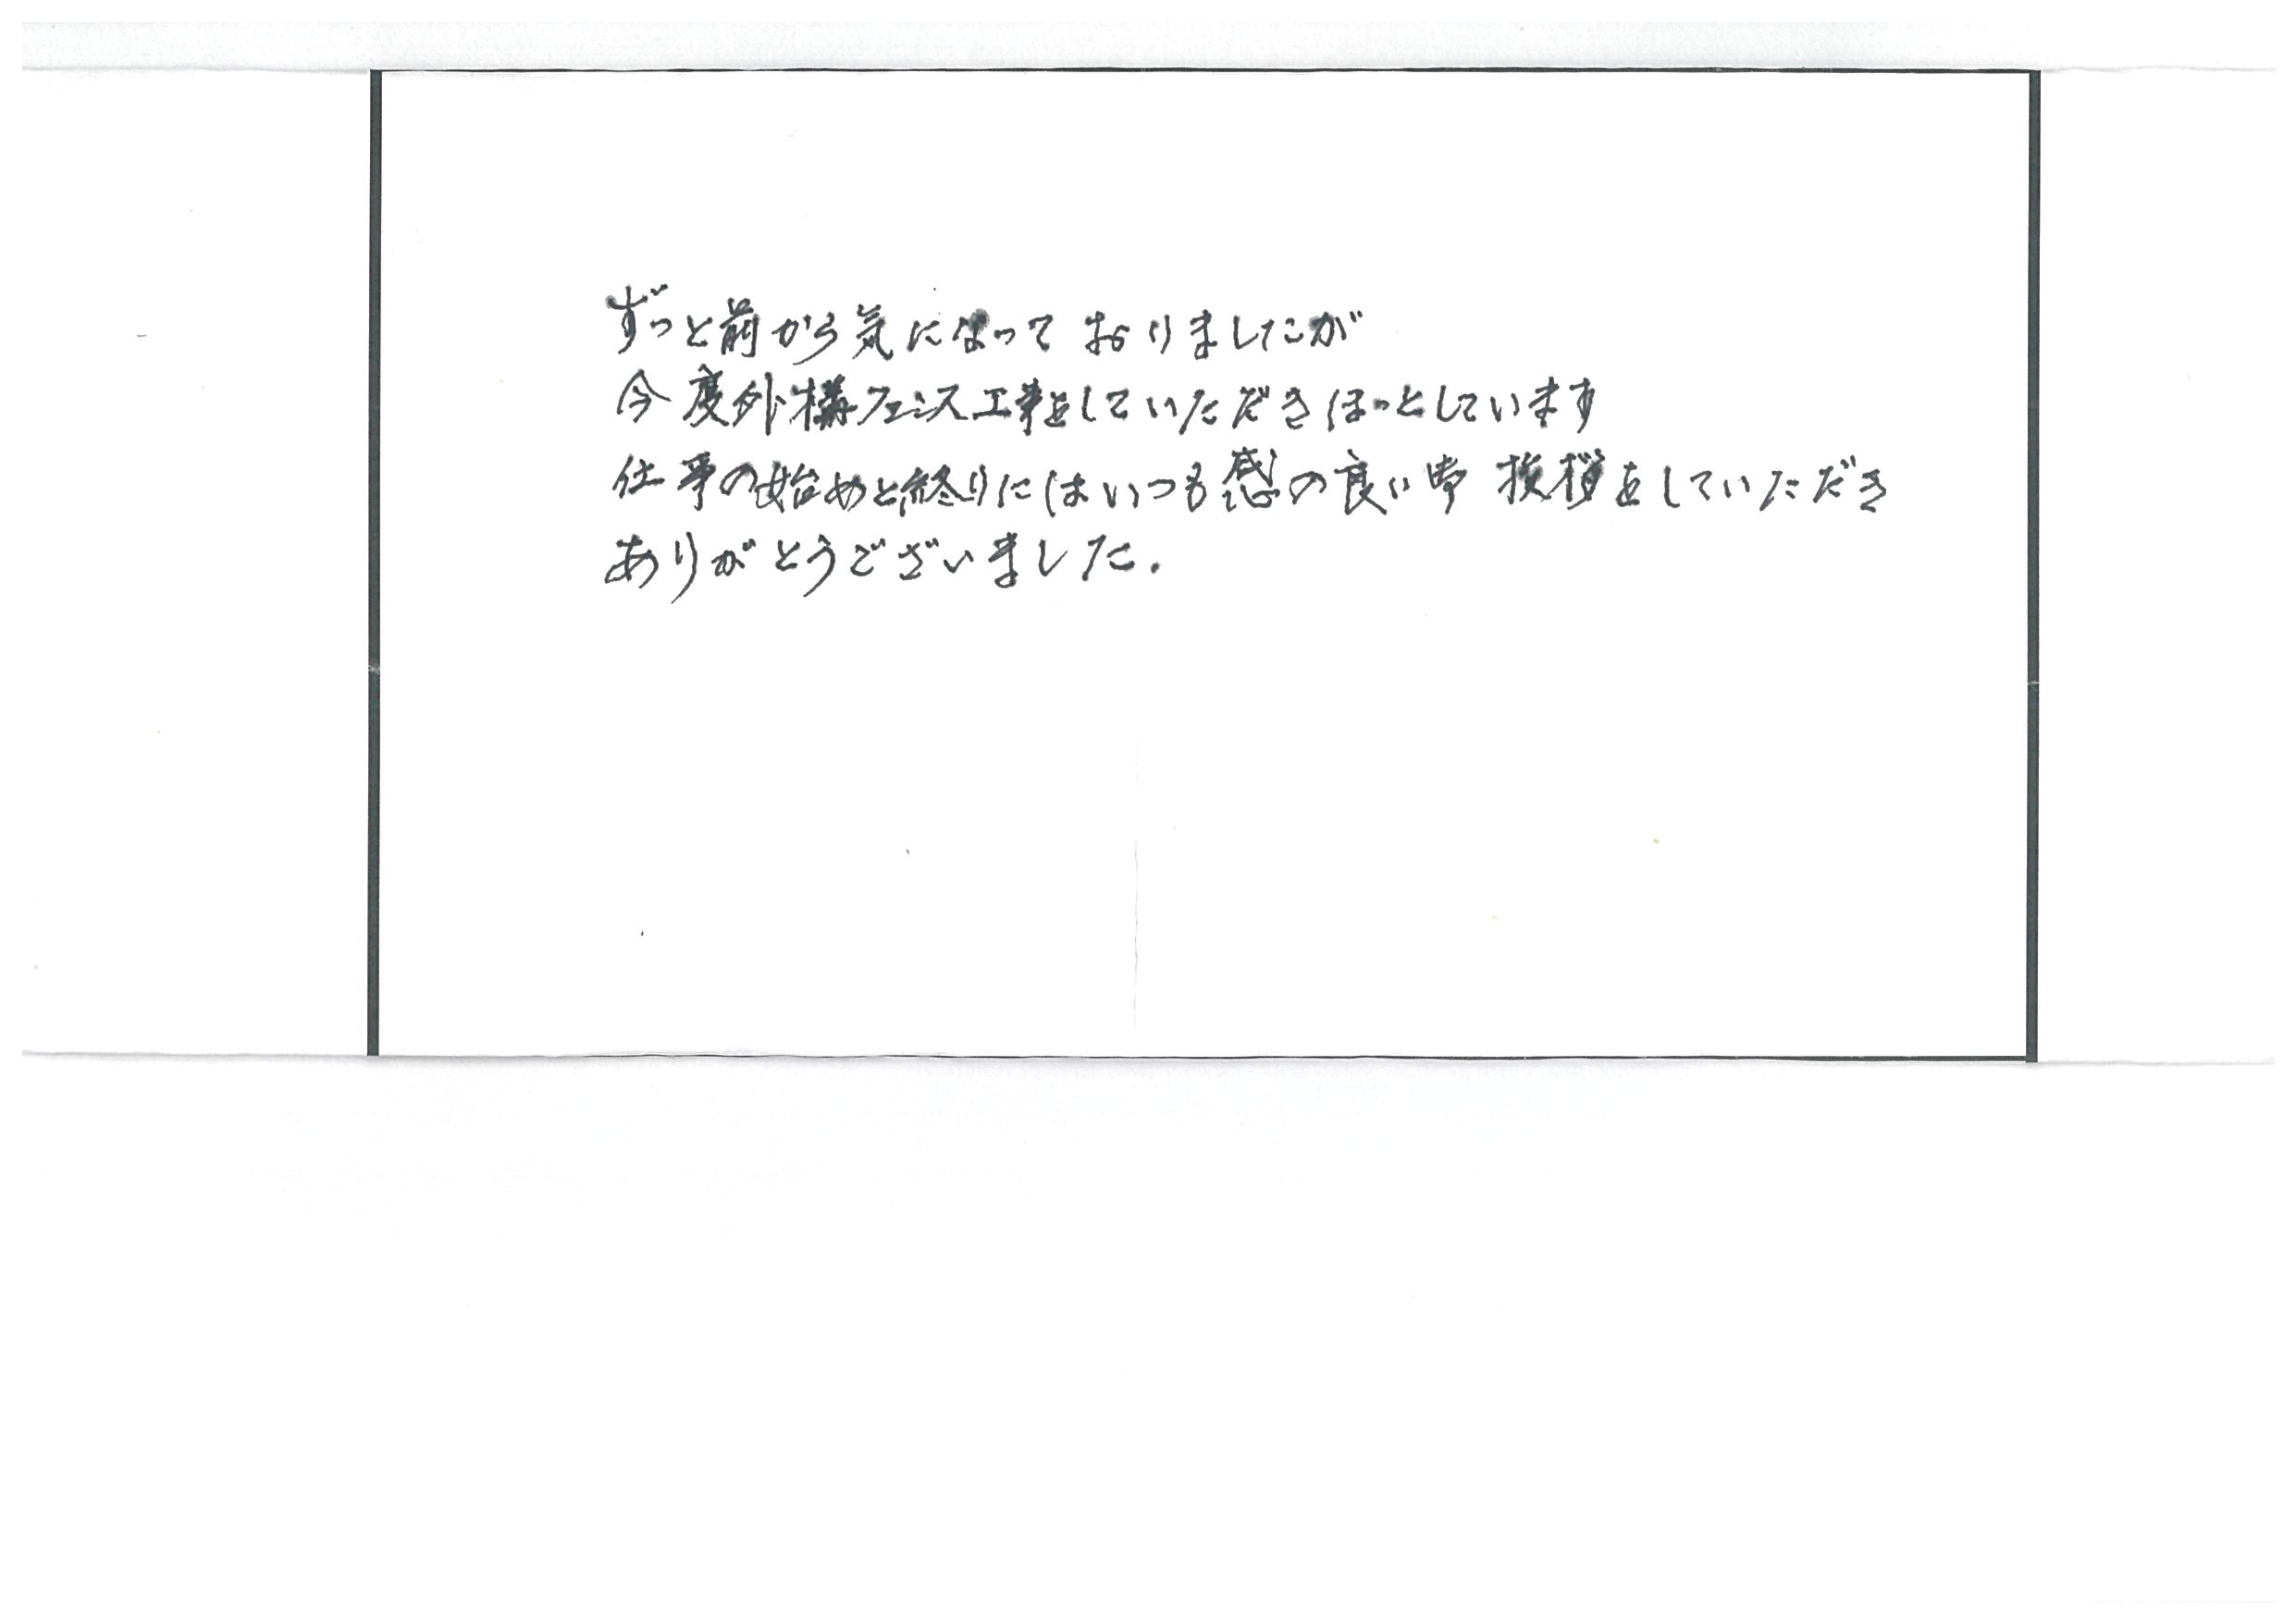 ずっと前から気になって おりましたが
今度外構フェンス工事をしていただきほっとしています
仕事の始めと終りにはいつも感の良い 挨拶をしていただき
ありがとうございました.